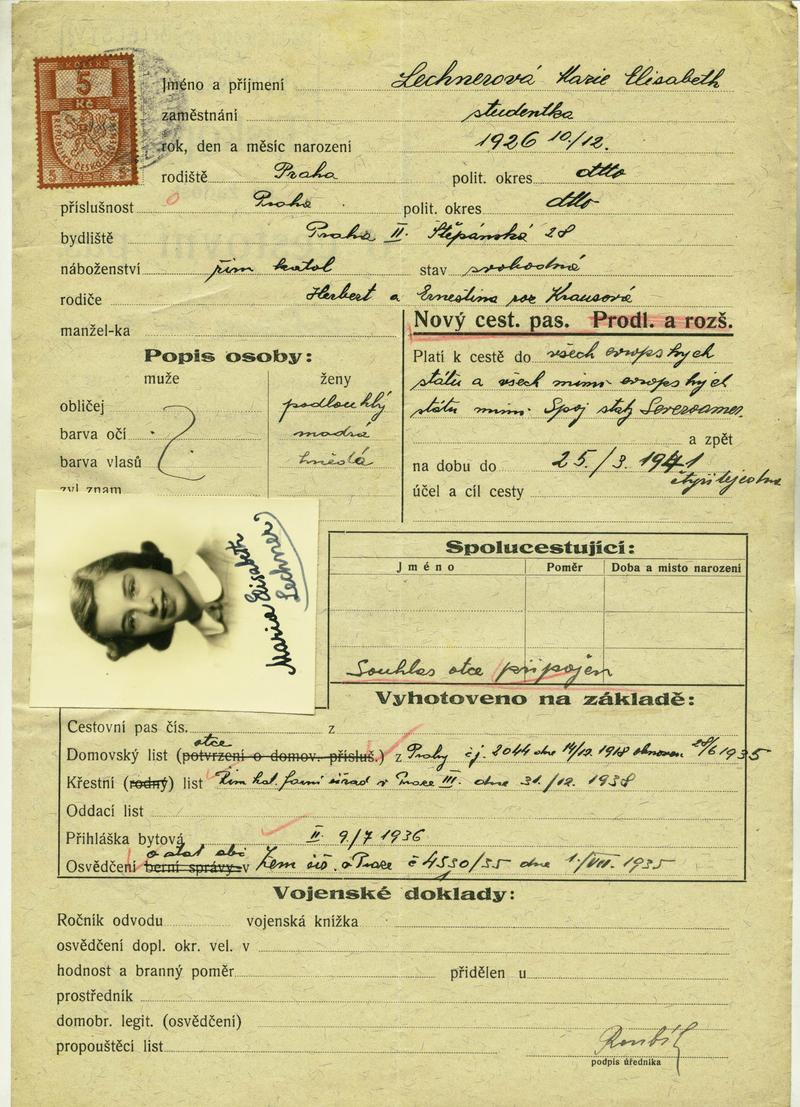 KOLEK
5
Kč
REPUBLIKA ČESKOSLOVENSKÁ
5 5
Jméno a příjmení Lechnerová Marie Elisabeth
zaměstnání studentka
rok, den a měsíc narození 1926 10/12.
rodiště Praha polit. okres dtto
příslušnost Praha polit. okres dtto
bydliště Praha II. Štěpánská 28
náboženství řím katol stav svobodná
rodiče Herbert a Ernestina roz Krausová
manžel-ka
Nový cest. pas. Prodl. a rozš.
Popis osoby:
muže ženy
obličej podlouhlý
barva očí modrá
barva vlasů hnědá
zvl znam
Platí k cestě do všech evropských
států a všech mimo evropských
států mimo Spoj státy Severoamer.
a zpět
na dobu do 25./3. 1941
účel a cíl cesty
Maria Elisabeth
Lechner
Spolucestující:
Jméno Poměr Doba a místo narození
Souhlas otce připojen
Vyhotoveno na základě:
Cestovní pas čís. z
otce
Domovský list (potvrzení o domov. přísluš.) z Prahy čj. 2044 dne 14/12 1918 obnoven 28/6 1935
Křestní (rodný) list Řím kat. farní úřad v Praze III. dne 31./12. 1938
Oddací list
Přihláška bytová II. 9/7 1936
o stát obč
Osvědčení berní správy v Zem úř. v Praze č 4530/35 dne 1./VII. 1935
Vojenské doklady:
Ročník odvodu vojenská knížka
osvědčení dopl. okr. vel. v
hodnost a branný poměr přidělen u
prostředník
domobr. legit. (osvědčení)
propouštěcí list
podpis úředníka